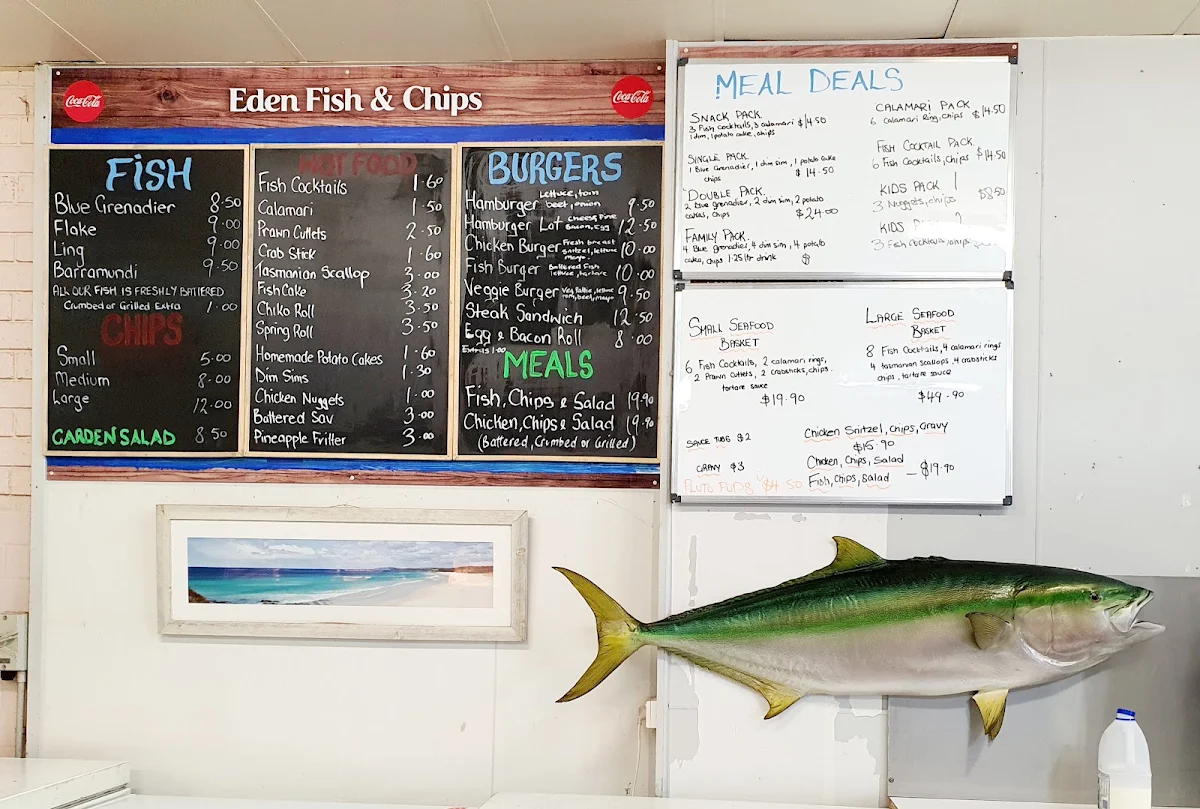 Coca-Cola
Eden Fish & Chips
Coca-Cola
FISH
Blue Grenadier 8.50
Flake 9.00
Ling 9.00
Barramundi 9.50
ALL OUR FISH IS FRESHLY BATTERED
Crumbed or Grilled Extra 1.00
CHIPS
Small 5.00
Medium 8.00
Large 12.00
GARDEN SALAD 8.50
HOT FOOD
Fish Cocktails 1.60
Calamari 1.50
Prawn Cutlets 2.50
Crab Stick 1.60
Tasmanian Scallop 3.00
Fish Cake 3.20
Chiko Roll 3.50
Spring Roll 3.50
Homemade Potato Cakes 1.60
Dim Sims 1.30
Chicken Nuggets 1.00
Battered Sav 3.00
Pineapple Fritter 3.00
BURGERS
Hamburger Lettuce, tom
beet, onion 9.50
Hamburger Lot Cheese, Pine
Bacon, Egg 12.50
Chicken Burger Fresh breast
snitzel, lettuce
mayo 10.00
Fish Burger Battered Fish
lettuce, tartare 10.00
Veggie Burger Veg Pattie, lettuce
tom, beet, mayo 9.50
Steak Sandwich 12.50
Egg & Bacon Roll 8.00
Extras 1.00
MEALS
Fish, Chips & Salad 19.90
Chicken, Chips & Salad 19.90
(Battered, Crumbed or Grilled)
MEAL DEALS
SNACK PACK
3 Fish cocktails, 3 calamari $14.50
1 dim, 1 potato cake, chips
SINGLE PACK
1 Blue Grenadier, 1 dim sim, 1 potato cake
chips $14.50
DOUBLE PACK
2 Blue grenadier, 2 dim sim, 2 potato
cakes, chips $24.00
FAMILY PACK
4 Blue grenadier, 4 dim sim, 4 potato
cake, chips 1.25 ltr drink $
CALAMARI PACK
6 Calamari ring, chips $14.50
FISH COCKTAIL PACK
6 Fish Cocktails, Chips $14.50
KIDS PACK 1
3 Nuggets, chips $8.50
KIDS 2
3 Fish Cocktails, chips
SMALL SEAFOOD
BASKET
6 Fish Cocktails, 2 calamari rings,
2 Prawn Cutlets, 2 crabsticks, chips
tartare sauce
$19.90
LARGE SEAFOOD
BASKET
8 Fish Cocktails, 4 calamari rings
4 tasmanian scallops, 4 crabsticks
chips, tartare sauce
$49.90
SAUCE TUBS $2
GRAVY $3
PLUTO PUPS $4.50
Chicken Snitzel, Chips, Gravy
$15.90
Chicken, Chips, Salad
Fish, Chips, Salad — $19.90